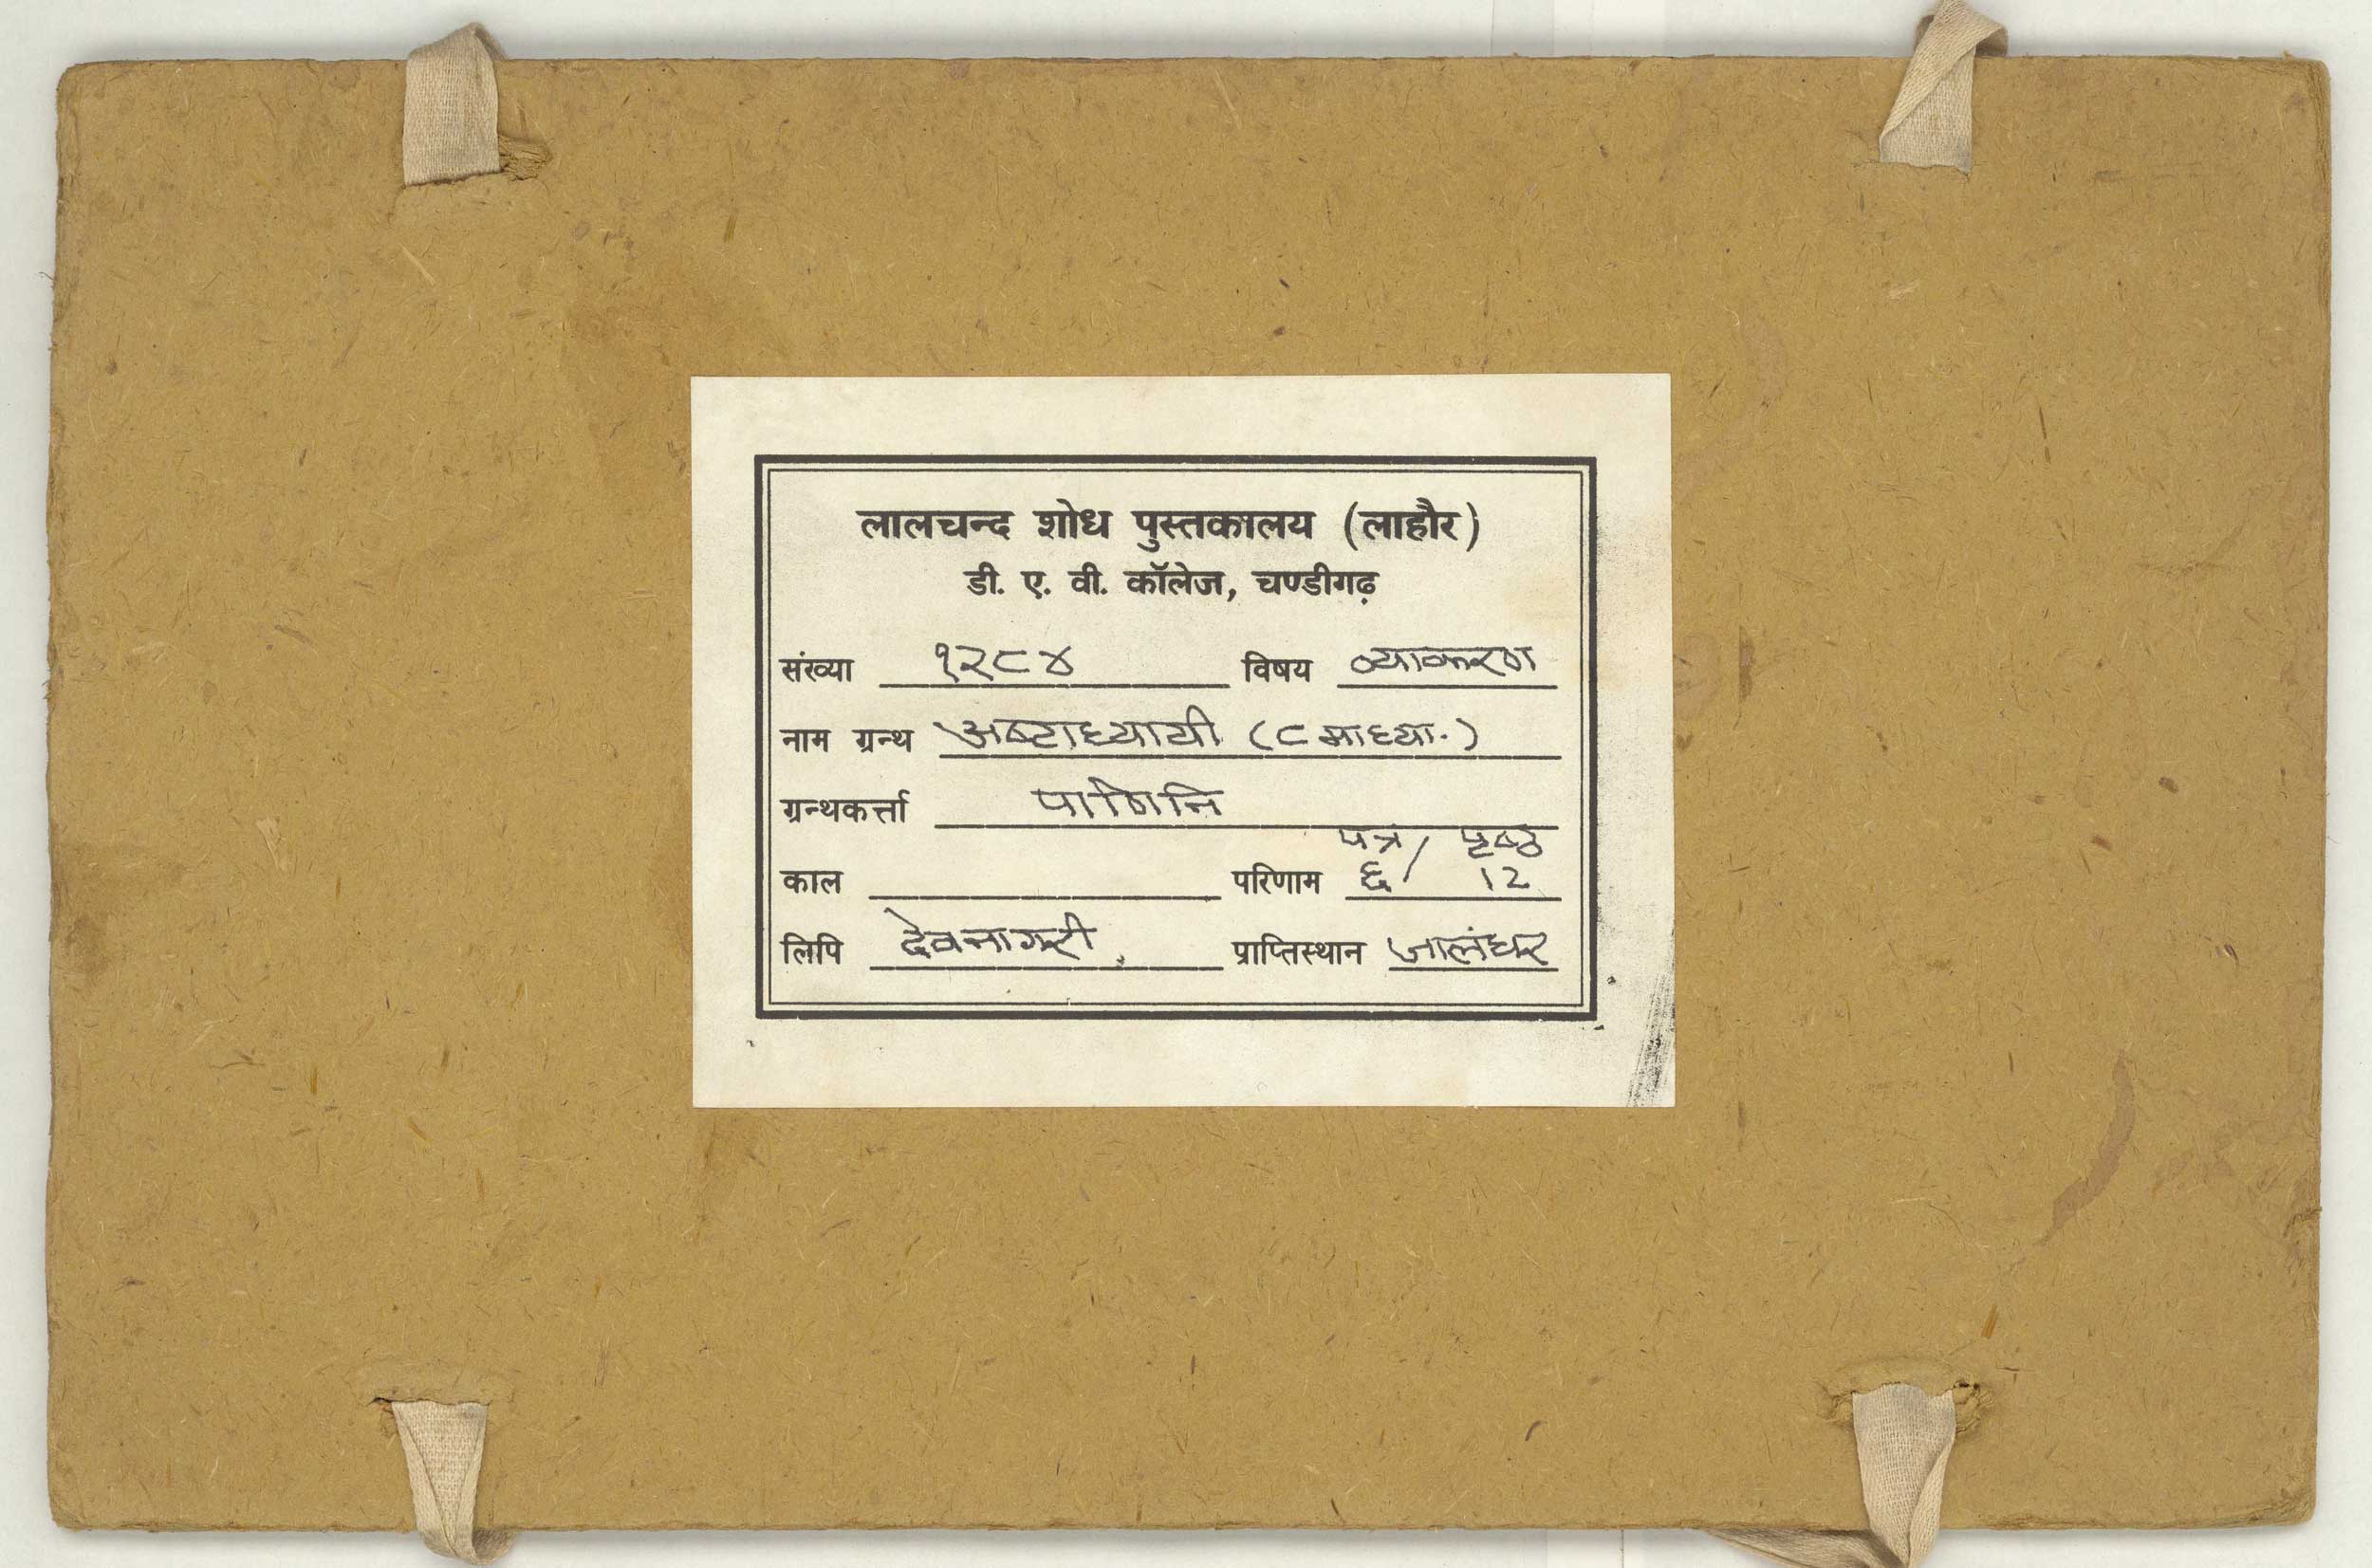 लालचन्द शोध पुस्तकालय (लाहौर)
डी. ए. वी. कॉलेज, चण्डीगढ़
संख्या १२८४ विषय व्याकरण
नाम ग्रन्थ अष्टाध्यायी (८माध्या.)
ग्रन्थकर्त्ता पाणिनि
पत्र / पृष्ठ
काल परिणाम ६/ 12
लिपि देवनागरी. प्राप्तिस्थान जालंधर